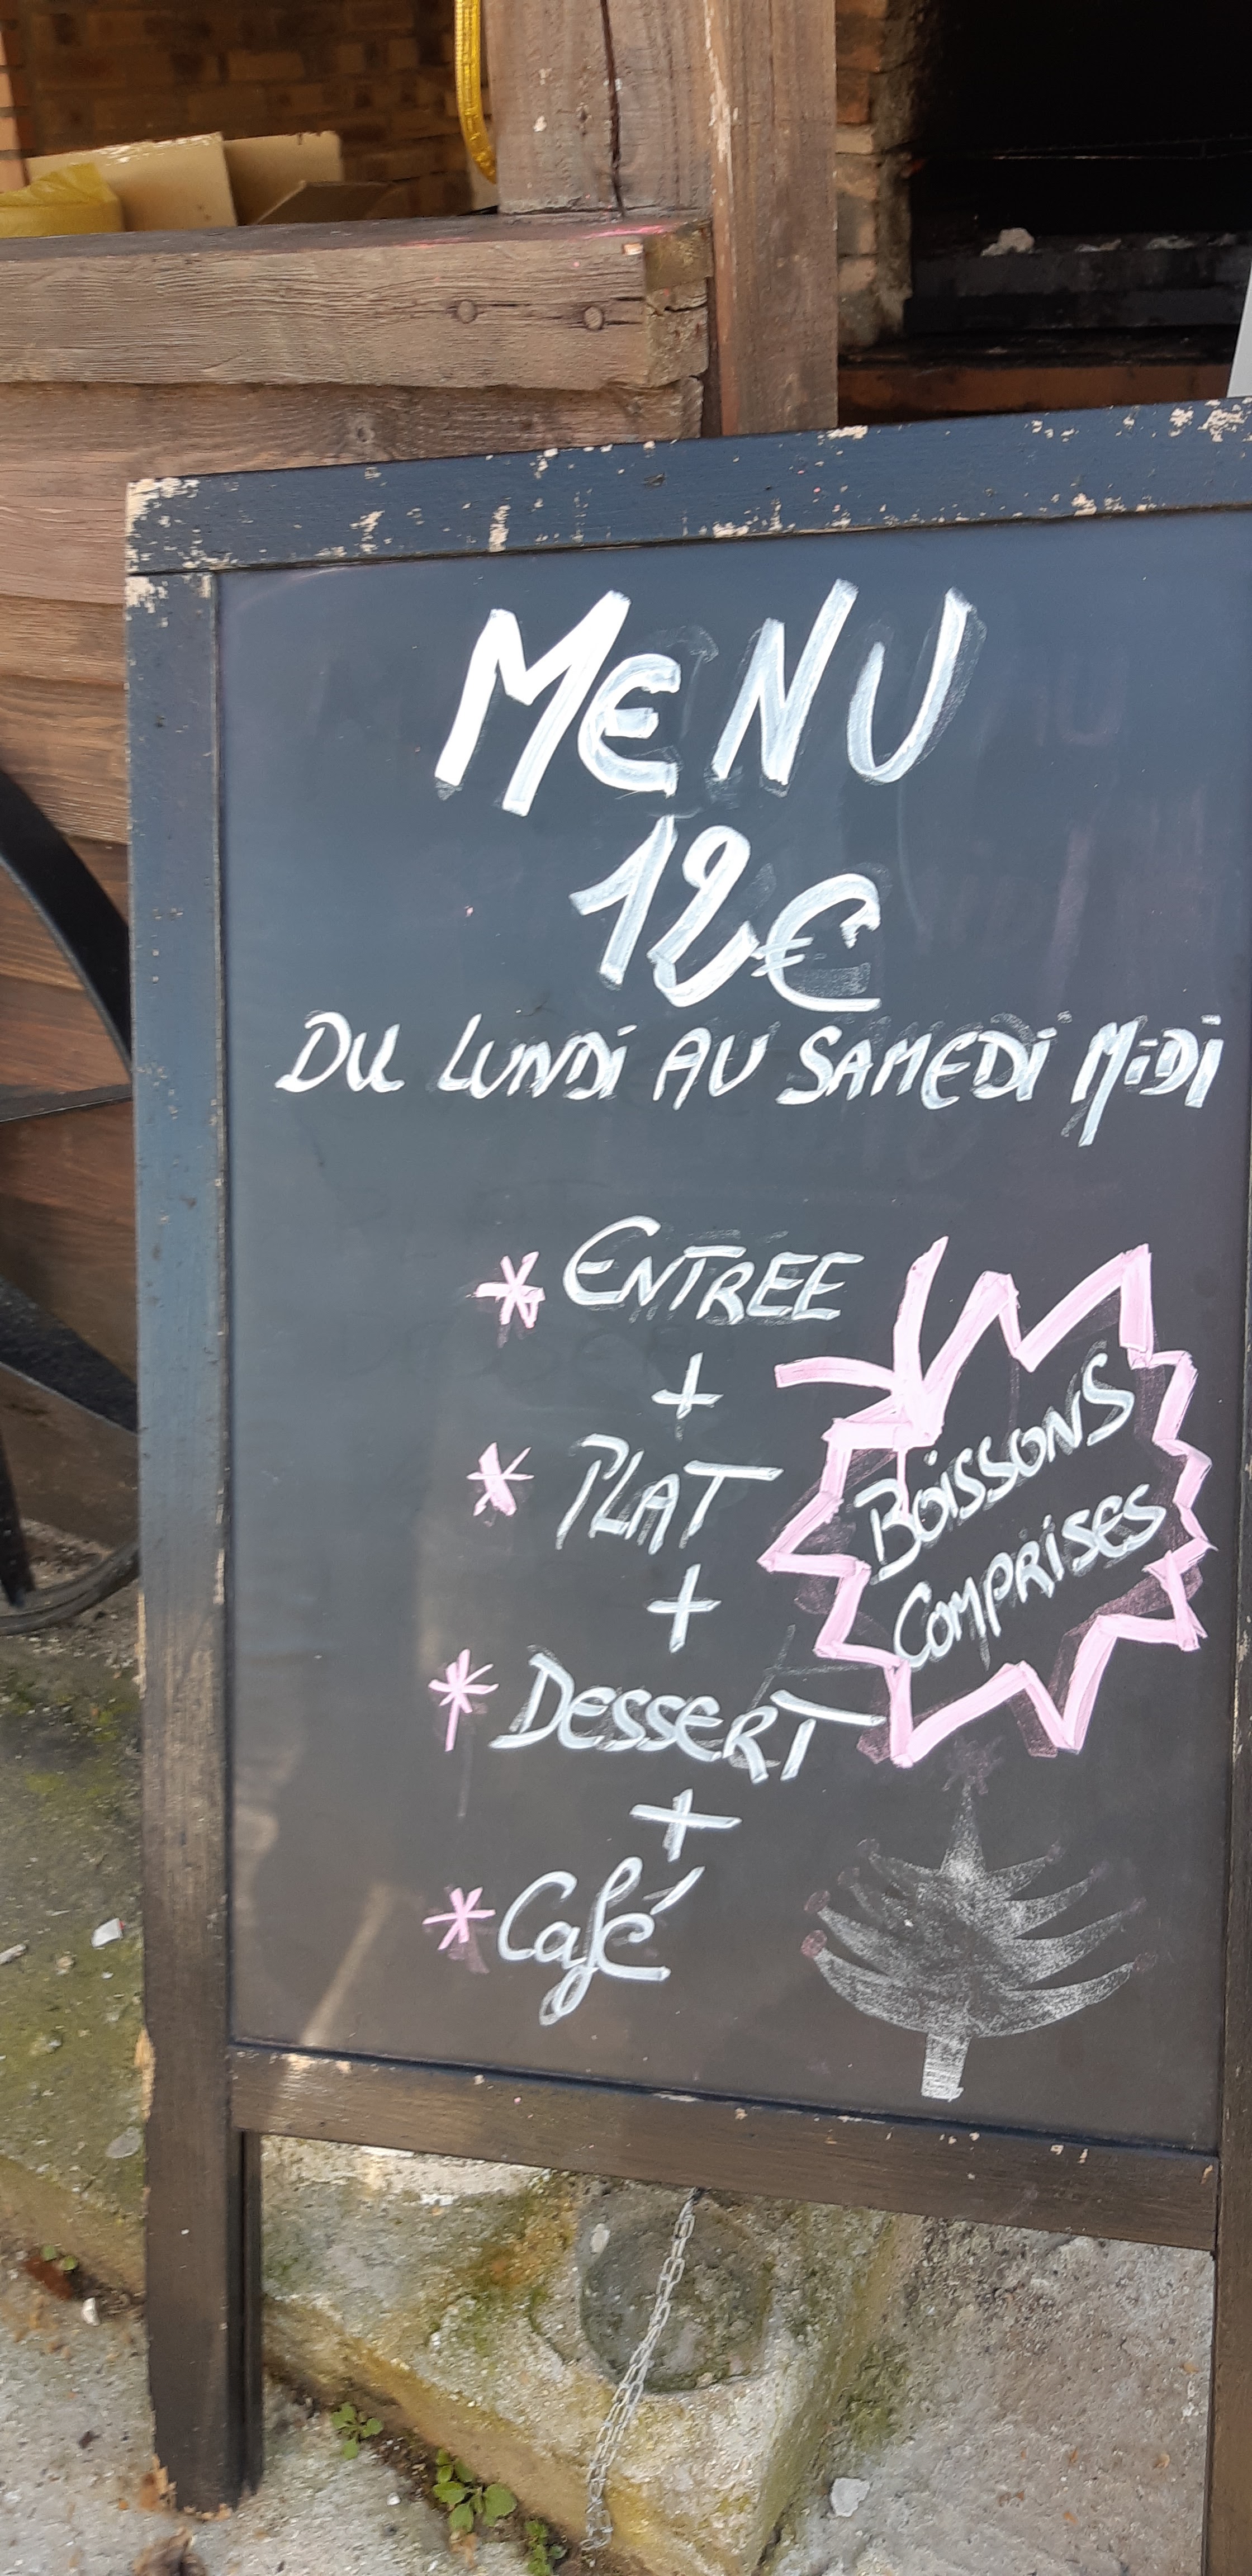 MENU
12€
DU LUNDI AU SAMEDI MIDI
* ENTREE
+
* PLAT
+
* DESSERT
+
* Café
BOISSONS
COMPRISES